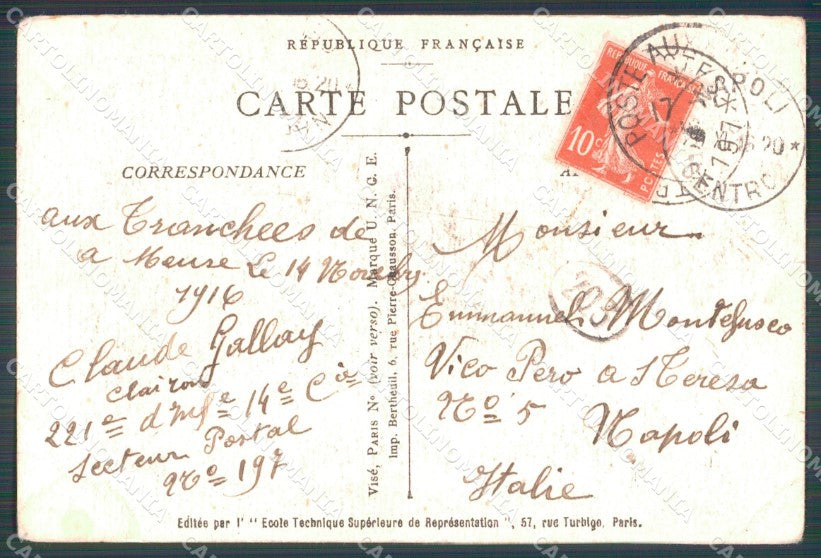 REPUBLIQUE FRANÇAISE
CARTE POSTALE
CORRESPONDANCE
aux Tranchees de
a Meuse Le 14 Novembre
1916
Claude Gallay
Clairon
221e d'Infie 14e Cie
Secteur Postal
No 197
Visé, PARIS No (voir verso). Marque U. N. G. E.
Imp. Bertheuil, 6, rue Pierre-Chausson, Paris.
REPUBLIQUE FRANÇAISE
10 c
POSTES
POSTE AUX
NAPOLI
CENTRO
Monsieur
Emmanuel Montefusco
Vico Pero a S Teresa
No 5
Napoli
Italie
Editée par l' " Ecole Technique Supérieure de Représentation ", 57, rue Turbigo, Paris.
CARTOLINOMANIA